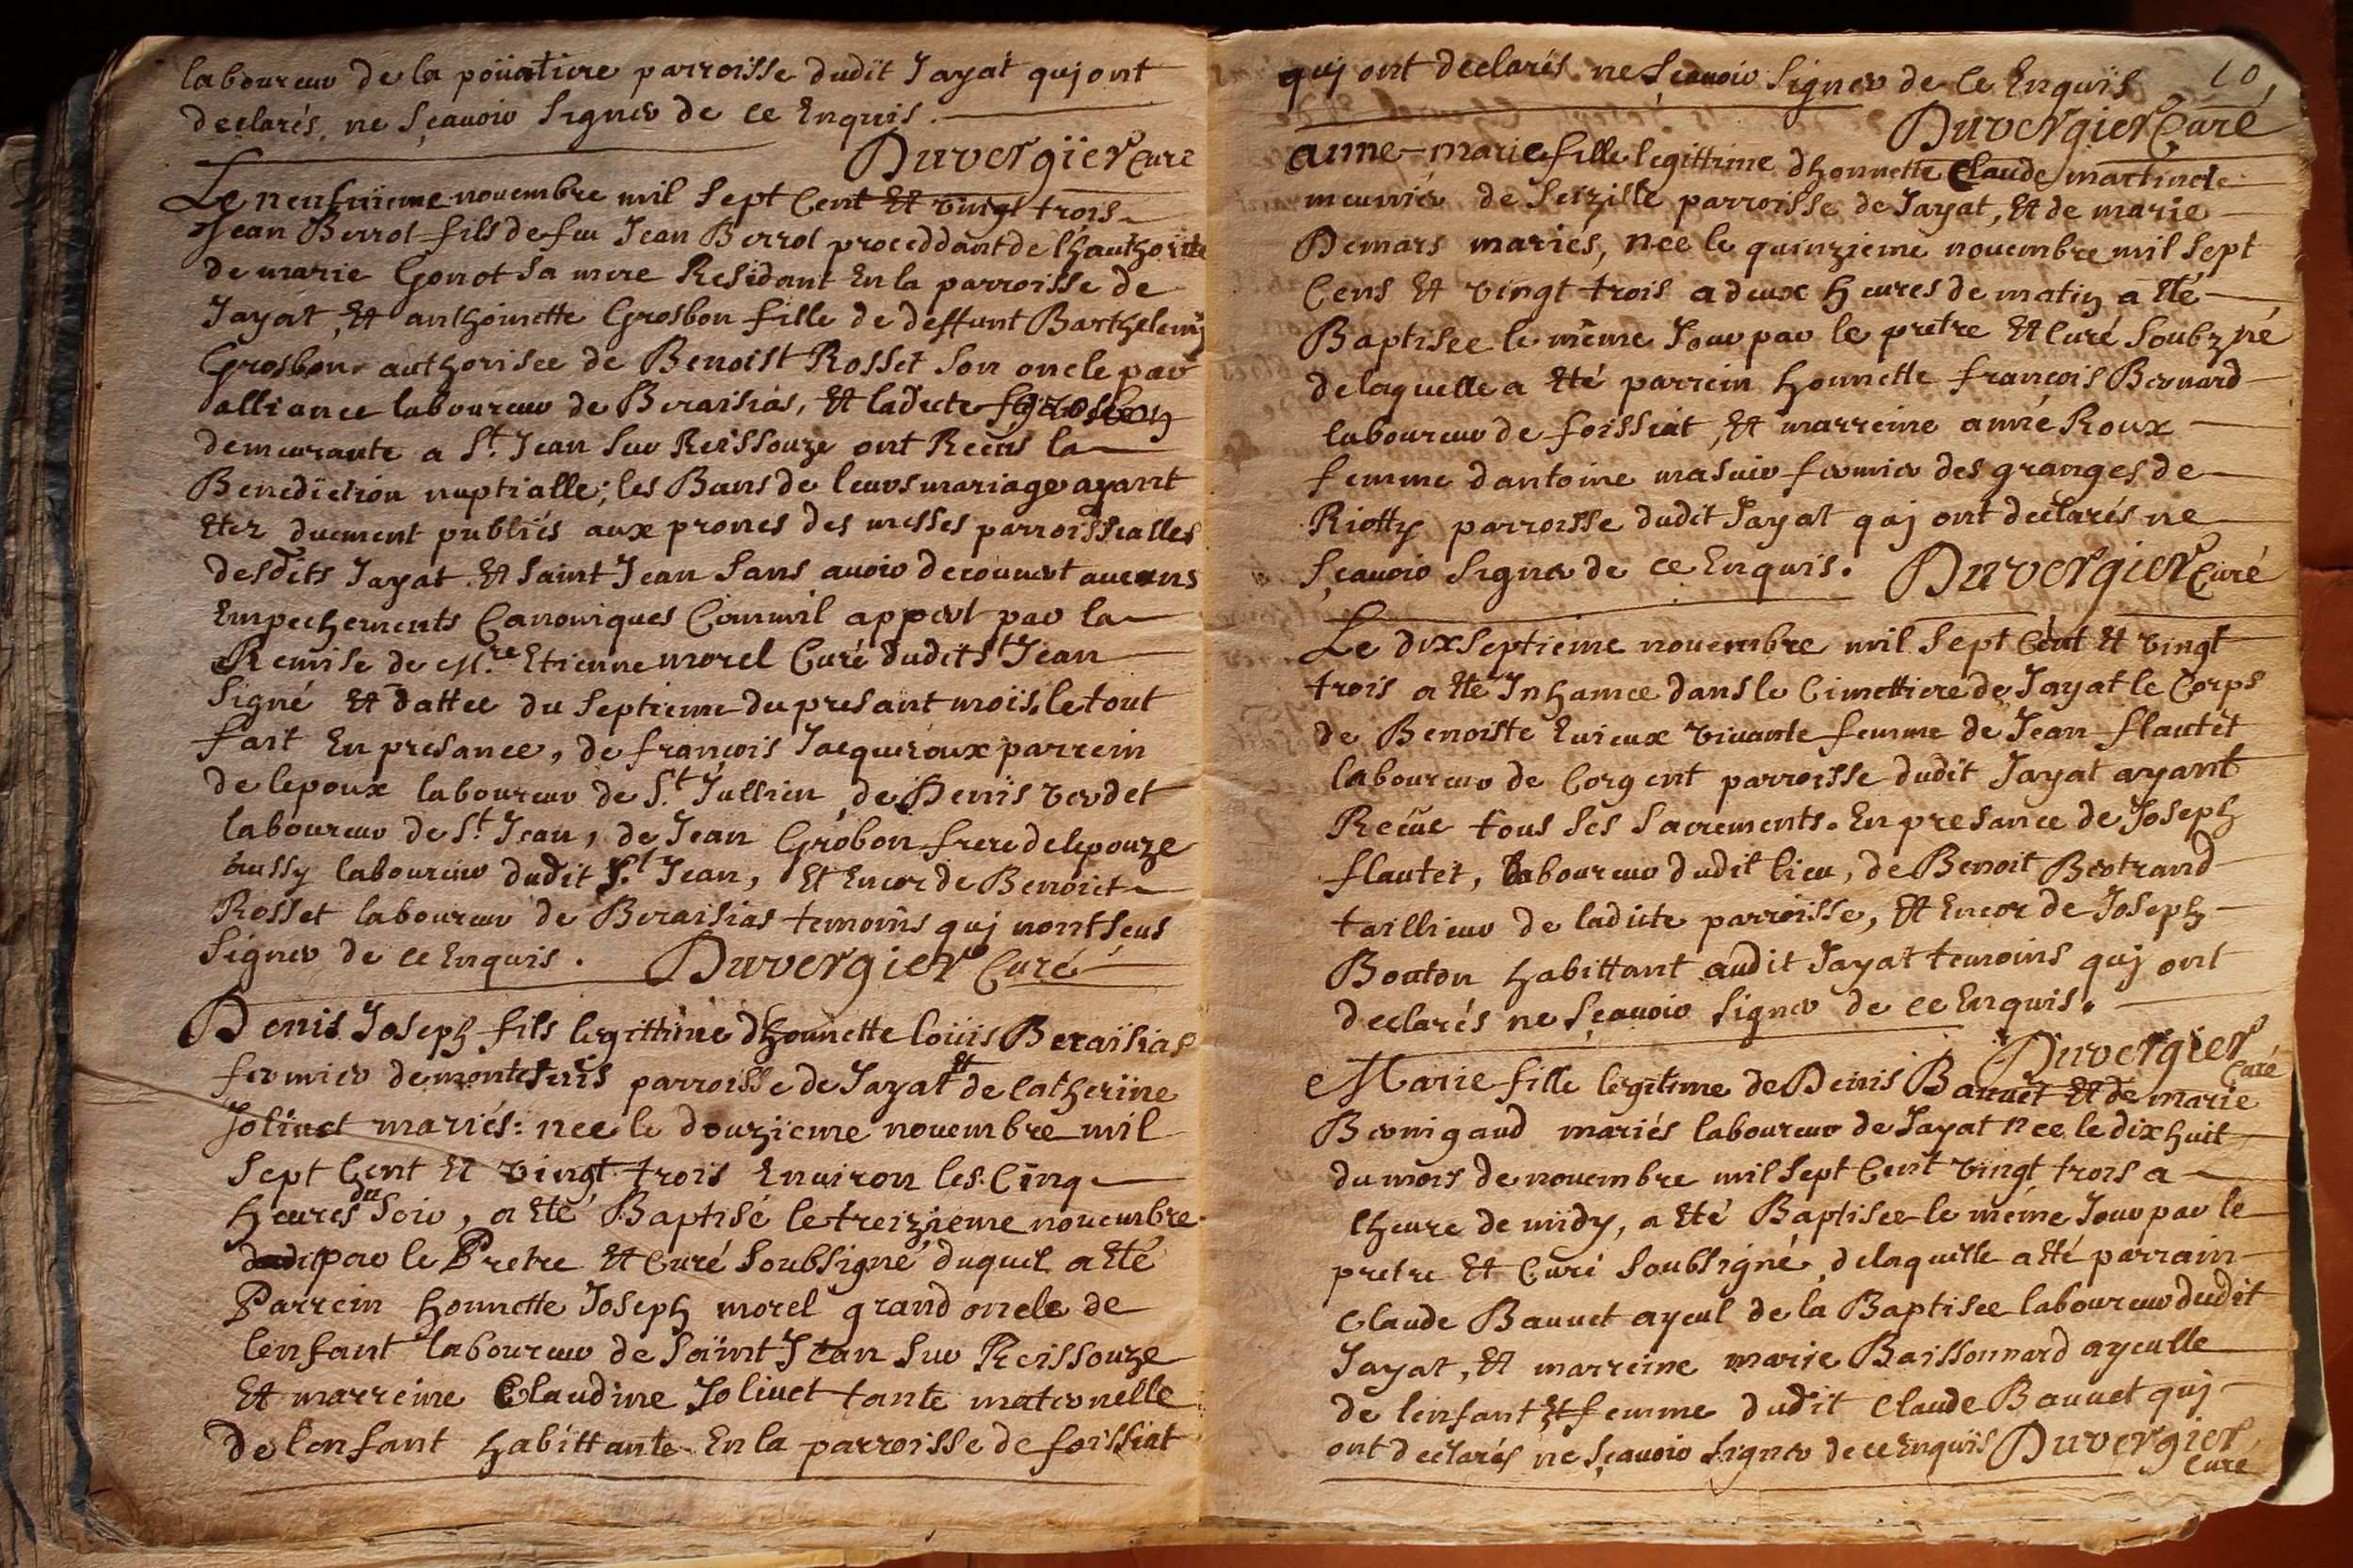 laboureur de la poüatiere parroisse dudit Jayat quj ont
declarés ne sçauoir signer de ce Enquis.
Duvergier Curé
Le neufuieme nouembre mil sept Cent Et vingt trois
Jean Berrot fils de feu Jean Berrot proceddant de lhauthorité
de marie Gonot sa mere Residant En la parroisse de
Jayat, Et anthoinette Grosbon fille de deffunt Barthelemij
Grosbon authorisee de Benoist Rosset son oncle par
alliance laboureur de Beraisias, Et ladicte Grosbon
demeurante a St. Jean sur Reissouze ont Recus la
Benediction nuptialle; les Bans de leurs mariage ayant
Etez duement publiés aux prones des messes parroissialles
desdits Jayat Et saint Jean sans auoir decouuert aucuns
Empechements Canoniques Comm'il appert par la
Remise de Mre. Etienne morel Curé dudit St Jean
signé Et dattee du septieme du presant mois, le tout
fait En presance, de françois Jacquiroux parrein
de lepoux laboureur de St. Jullien, de Denis verdet
laboureur de St. Jean, de Jean Grobon frere de lepouze
aussy laboureur dudit St. Jean, Et Encor de Benoict
Rosset laboureur de Beraisias temoins quj nont sceus
signer de ce Enquis. Duvergier Curé
Denis Joseph fils legittime dhonnette loüis Beraisias
fermier de montesuis parroisse de Jayat Et de Catherine
Joliuet mariés: nee le douzieme nouembre mil
sept Cent Et vingt trois Enuiron les Cinq
heures du soir, a Eté Baptisé le treizieme nouembre
dudit par le Pretre Et Curé soubsigné duquel a Eté
Parrein honnette Joseph morel grand oncle de
lenfant laboureur de saint Jean sur Reissouze
Et marreine Claudine Joliuet tante maternelle
de lenfant habittante En la parroisse de foissiat
quj ont declarés ne sçauoir signer de ce Enquis 10,
Duvergier Curé
anne-marie fille legittime dhonnette Claude martin de
meunier de Seizille parroisse de Jayat, Et de marie
Demars mariés, nee le quinzieme nouembre mil sept
Cens Et vingt trois a deux heures de matin a Eté
Baptisee le même Jour par le pretre Et Curé soubzné
de laquelle a Eté parrein honnette françois Bernard
laboureur de foissiat, Et marreine anne Roux
femme dantoine masuir fermier des granges de
Riotty parroisse dudit Jayat quj ont declarés ne
sçauoir signer de ce Enquis. Duvergier Curé
Le dixseptieme nouembre mil sept Cent Et vingt
trois a Eté Inhamee dans le Cimettiere de Jayat le Corps
de Benoiste Euieux viuante femme de Jean flautet
laboureur de Corgent parroisse dudit Jayat ayant
Recue tous ses sacrements. En presance de Joseph
flautet, laboureur dudit lieu, de Benoit Bertrand
taillieur de ladicte parroisse, Et Encor de Joseph
Bouton habittant audit Jayat temoins quj ont
declarés ne sçauoir signer de ce Enquis.
Duvergier Curé
Marie fille legitime de Denis Bauuet Et de marie
Bernigaud mariés laboureur de Jayat nee le dix huit
du mois de nouembre mil sept Cent vingt trois a
lheure de midy, a Eté Baptisee le méme Jour par le
pretre Et Curé soubsigné, de laquelle a Eté parrain
Claude Bauuet ayeul de la Baptisee laboureur dudit
Jayat, Et marreine marie Baissonnard ayeulle
de lenfant Et femme dudit Claude Bauuet quj
ont declarés ne sçauoir signer de ce Enquis Duvergier
Curé